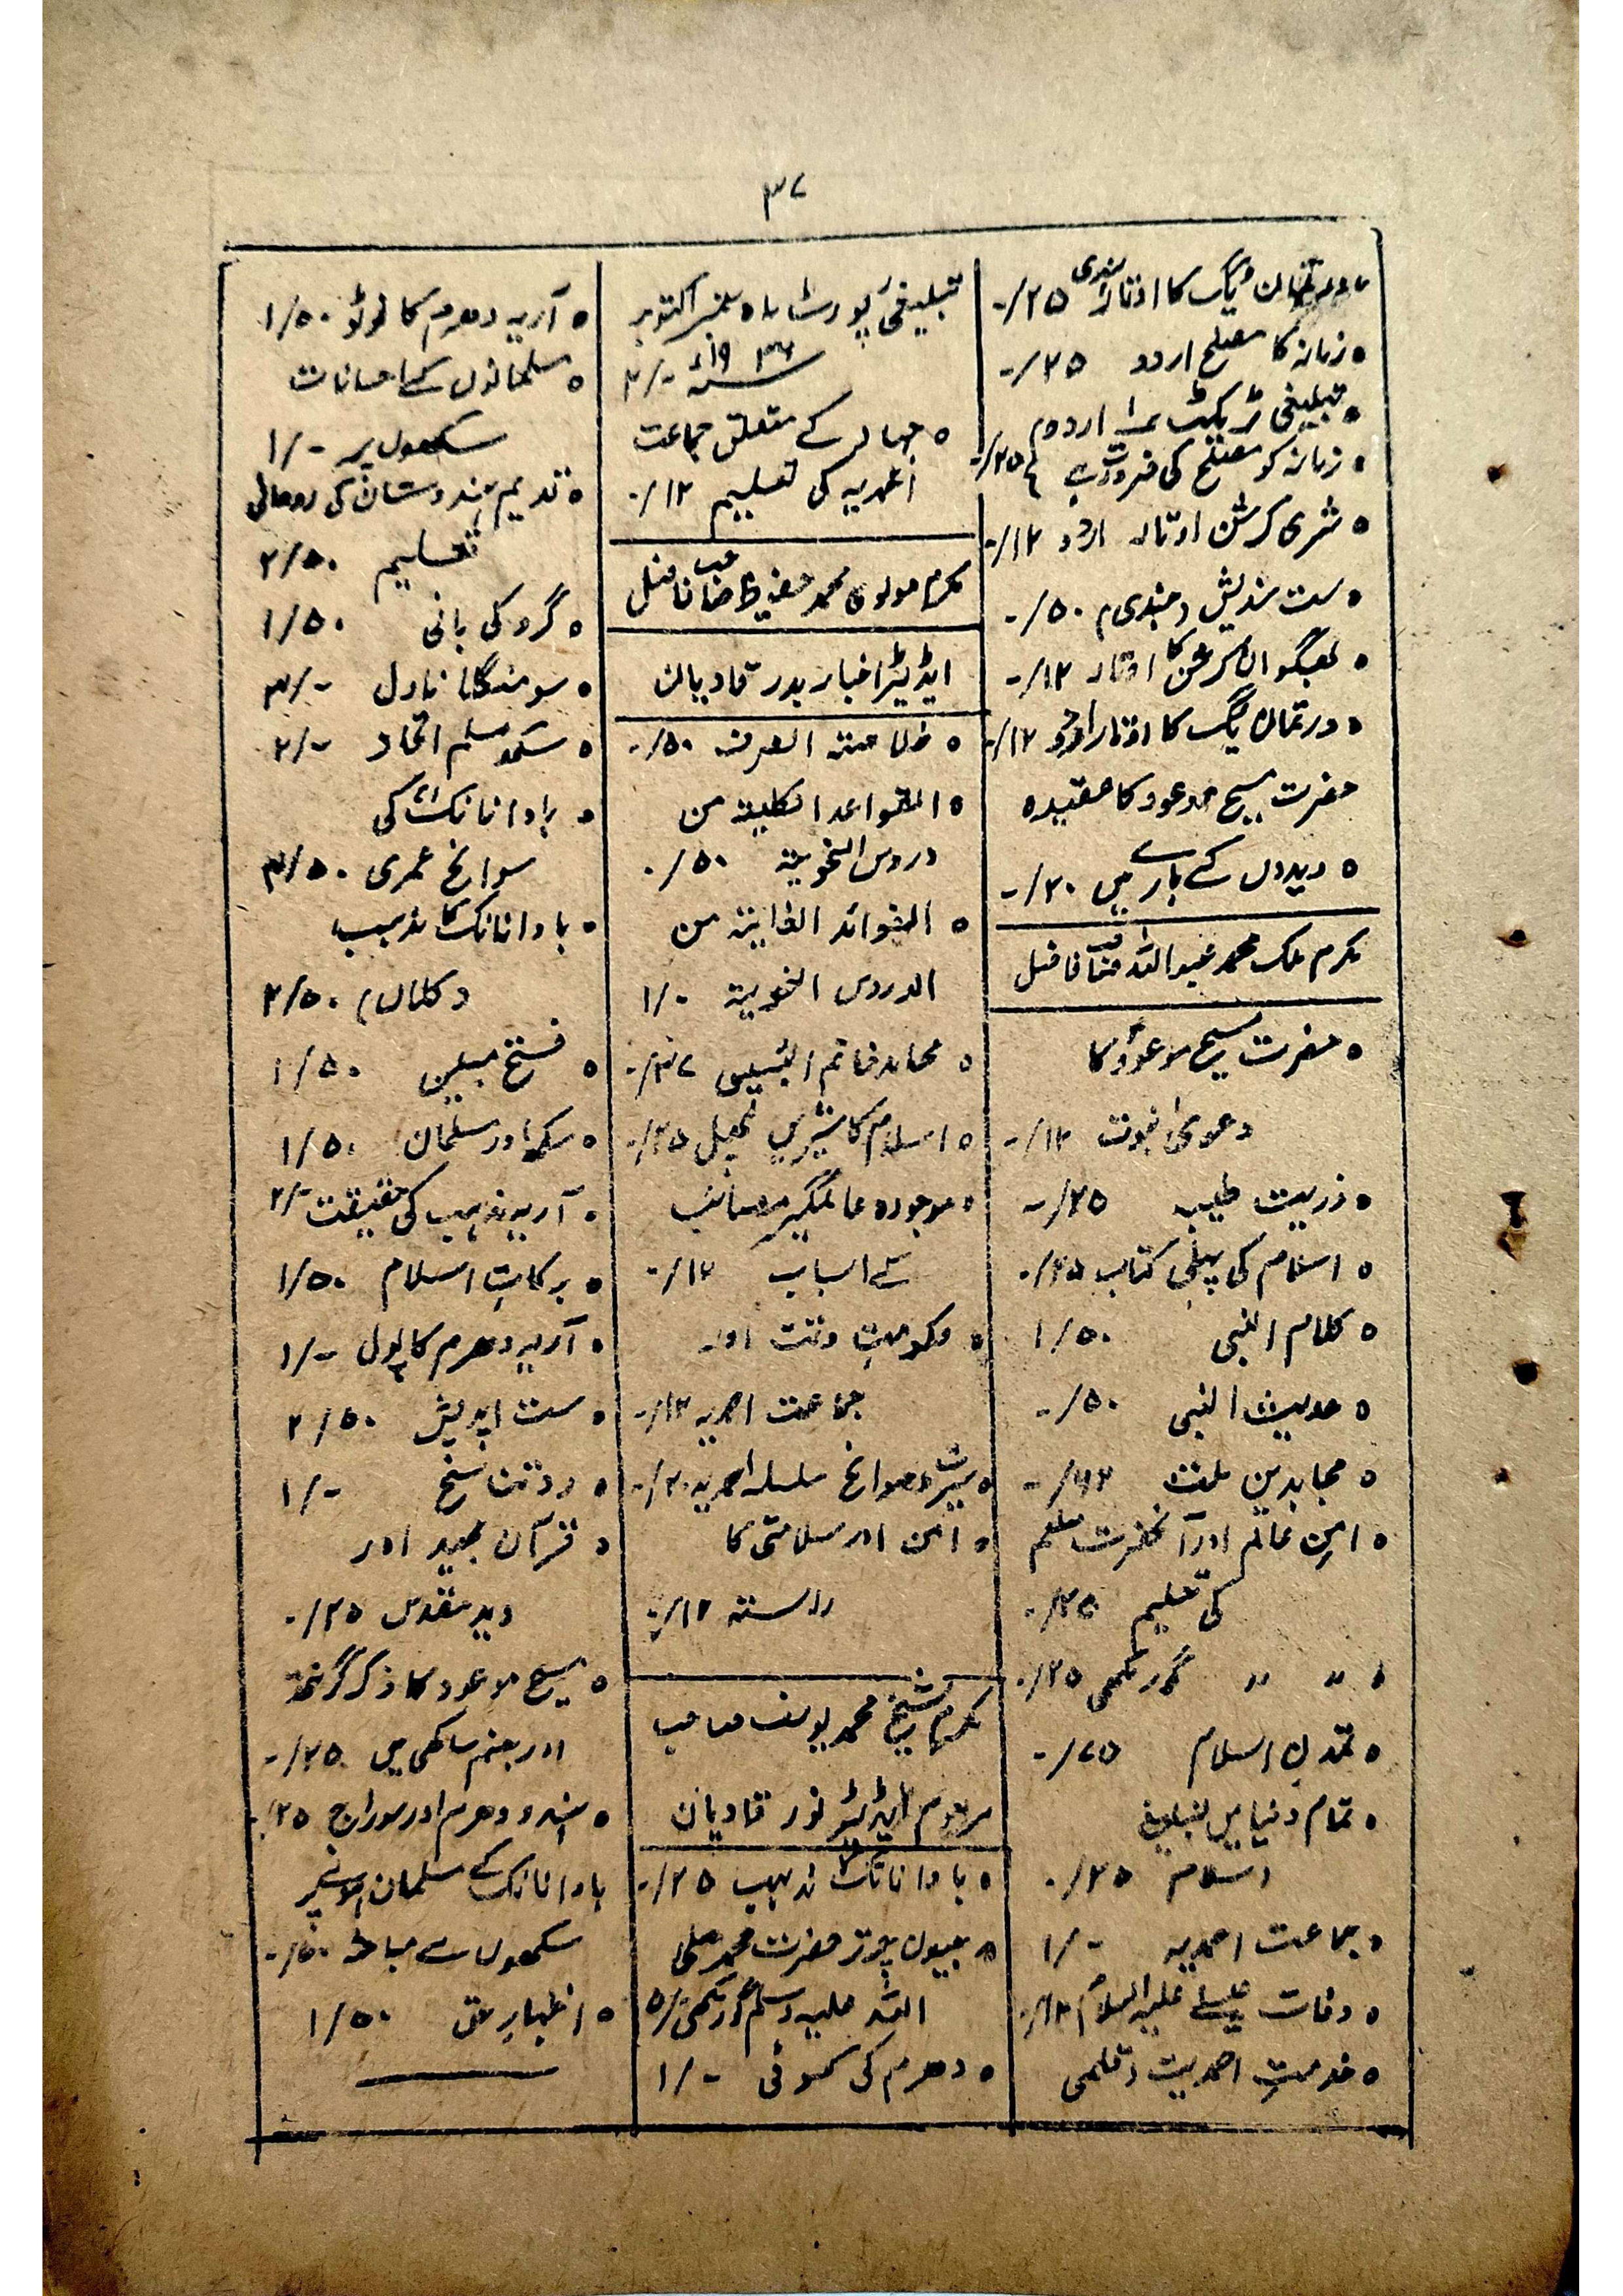 ۳۷
• ورتمان یگ کا اوتار ہندی ۲۵/-
• زمانہ کا مصلح اردو ۲۵/-
• تبلیغی ٹریکٹ نمبر۱ اردو
• زمانہ کو مصلح کی ضرورت ہے ۲۵/-
• شری کرشن اوتار اردو ۱۲/-
• ست سندیش (ہندی) ۵۰/-
• بھگوان کرشن کا اوتار ۱۲/-
• ورتمان یگ کا اوتار اردو ۱۲/-
حضرت مسیح موعود کا عقیدہ
• ویدوں کے بارے میں ۲۰/-
مکرم ملک محمد عبد اللہ صاحب فاضل
• حضرت مسیح موعودؑ کا
دعویٰ نبوت ۱۲/-
• ذریت طیبہ ۲۵/-
• اسلام کی پہلی کتاب ۲۵/۰
• کلام النبی ۱/۵۰
• حدیث النبی ۵۰/-
• مجاہدین ملت ۶۲/-
• امن عالم اور آنحضرت صلعم
کی تعلیم ۲۵/۰
• 〃 〃 گورمکھی ۲۵/۰
• تمدن اسلام ۷۵/-
• تمام دنیا میں تبلیغ
اسلام ۲۵/۰
• جماعت احمدیہ ۱/-
• وفات عیسیٰ علیہ السلام ۱۲/۰
• خدمتِ احمدیت (قلمی
تبلیغی رپورٹ ماہ ستمبر اکتوبر
۱۹۳۶ء ۲/-
• جہاد کے متعلق جماعت
احمدیہ کی تعلیم ۱۲/۰
مکرم مولوی محمد حفیظ صاحب فاضل
ایڈیٹر اخبار بدر قادیان
• خلاصۃ الصرف ۵۰/-
• القواعد الکلیۃ من
دروس النحویۃ ۵۰/۰
• الفوائد من
الدروس النحویۃ ۱/۰
• محامد خاتم النبیین ۳۷/-
• اسلام کا شیریں پھل ۲۵/-
• موجودہ عالمگیر مصائب
کے اسباب ۱۲/-
• حکومتِ وقت اور
جماعت احمدیہ ۱۲/-
• سیرت و سوانح سلسلہ احمدیہ ۲۰/-
• امن اور سلامتی کا
راستہ ۱۲/۰
مکرم شیخ محمد یوسف صاحب
مرحوم ایڈیٹر نور قادیان
• باوا نانک کا مذہب ۲۵/-
• جیون چرتر حضرت محمد صلی
اللہ علیہ وسلم گورمکھی ۵/-
• دھرم کی کسوٹی ۱/-
• آریہ دھرم کا فوٹو ۱/۵۰
• مسلمانوں کے احسانات
سکھوں پر ۱/-
• قدیم ہندوستان کی روحانی
تعلیم ۲/۵۰
• گرو کی بانی ۱/۵۰
• سومنگلا ناول ۳/-
• سکھ مسلم اتحاد ۲/-
• باوا نانکؒ کی
سوانح عمری ۳/۵۰
• باوا نانک کا مذہب
(کلاں) ۲/۵۰
• فتح مبین ۱/۵۰
• سکھ اور مسلمان ۱/۵۰
• آریہ مذہب کی حقیقت ۲/-
• برکاتِ اسلام ۱/۵۰
• آریہ دھرم کا پول ۱/-
• ست اپدیش ۲/۵۰
• رد تناسخ ۱/-
• قرآن مجید اور
وید مقدس ۲۵/۰
• مسیح موعود کا ذکر گرنتھ
اور جنم ساکھی میں ۲۵/-
• ہندو دھرم اور سوراج ۲۵/۰
باوا نانک کے مسلمان ہونے پر
سکھوں سے مباحثہ ۵۰/-
• اظہارِ حق ۱/۵۰